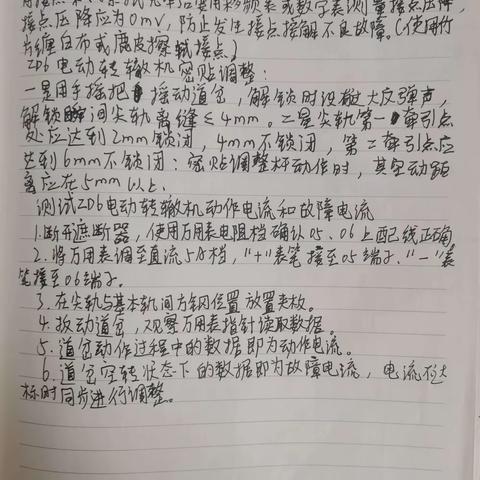 接点压降应为0mv，防止发生接点接解不良故障。（使用竹
片缠白布或鹿皮擦拭接点）
ZD6电动转辙机密贴调整：
一是用手摇把摇动道岔，解锁时没做大反弹声，
解锁瞬间尖轨离缝≤4mm。二是尖轨第一牵引点
处应达到2mm锁闭，4mm不锁闭，第二牵引点应
达到6mm不锁闭：密贴调整杆动作时，其空动距
离应在5mm以上。
测试ZD6电动转辙机动作电流和故障电流
1.断开遮断器，使用万用表电阻档确认05、06上配线正确
2.将万用表调至直流5A档，"+"表笔接至05端子，"一"表
笔接至06端子。
3.在尖轨与基本轨间方钢位置放置夹板。
4.扳动道岔，观察万用表指针读取数据。
5.道岔动作过程中的数据即为动作电流。
6.道岔空转状态下的数据即为故障电流，电流不达
标时同步进行调整。